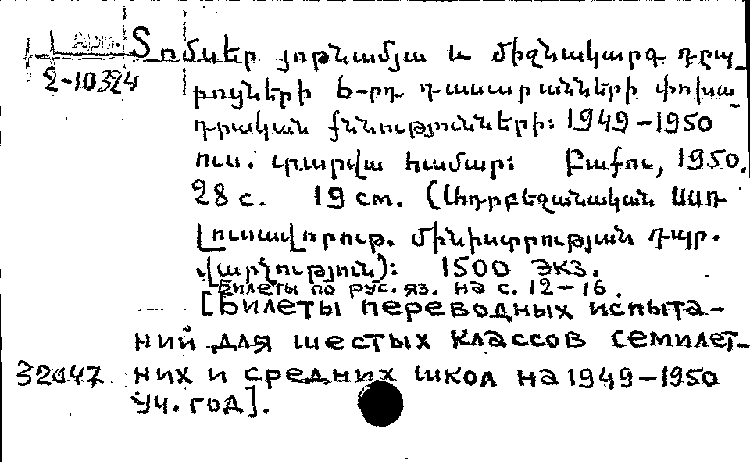 Арм.
2-10324
Տոմսեր յոթնամյա և միջնակարգ դպ-
րոցների 6-րդ դասարանների փոխա-
դրական քննությունների: 1949-1950
ուս. տարվա համար: Բաքու, 1950.
28 с. 19 см. (Ադրբեջանական ՍՍՌ
Լուսավորութ. մինիստրության դպր.
վարչություն): 1500 экз.
Билеты по рус. яз. на с. 12-16.
[Билеты переводных испыта-
ний для шестых классов семилет-
32047 них и средних школ на 1949-1950
уч. год].